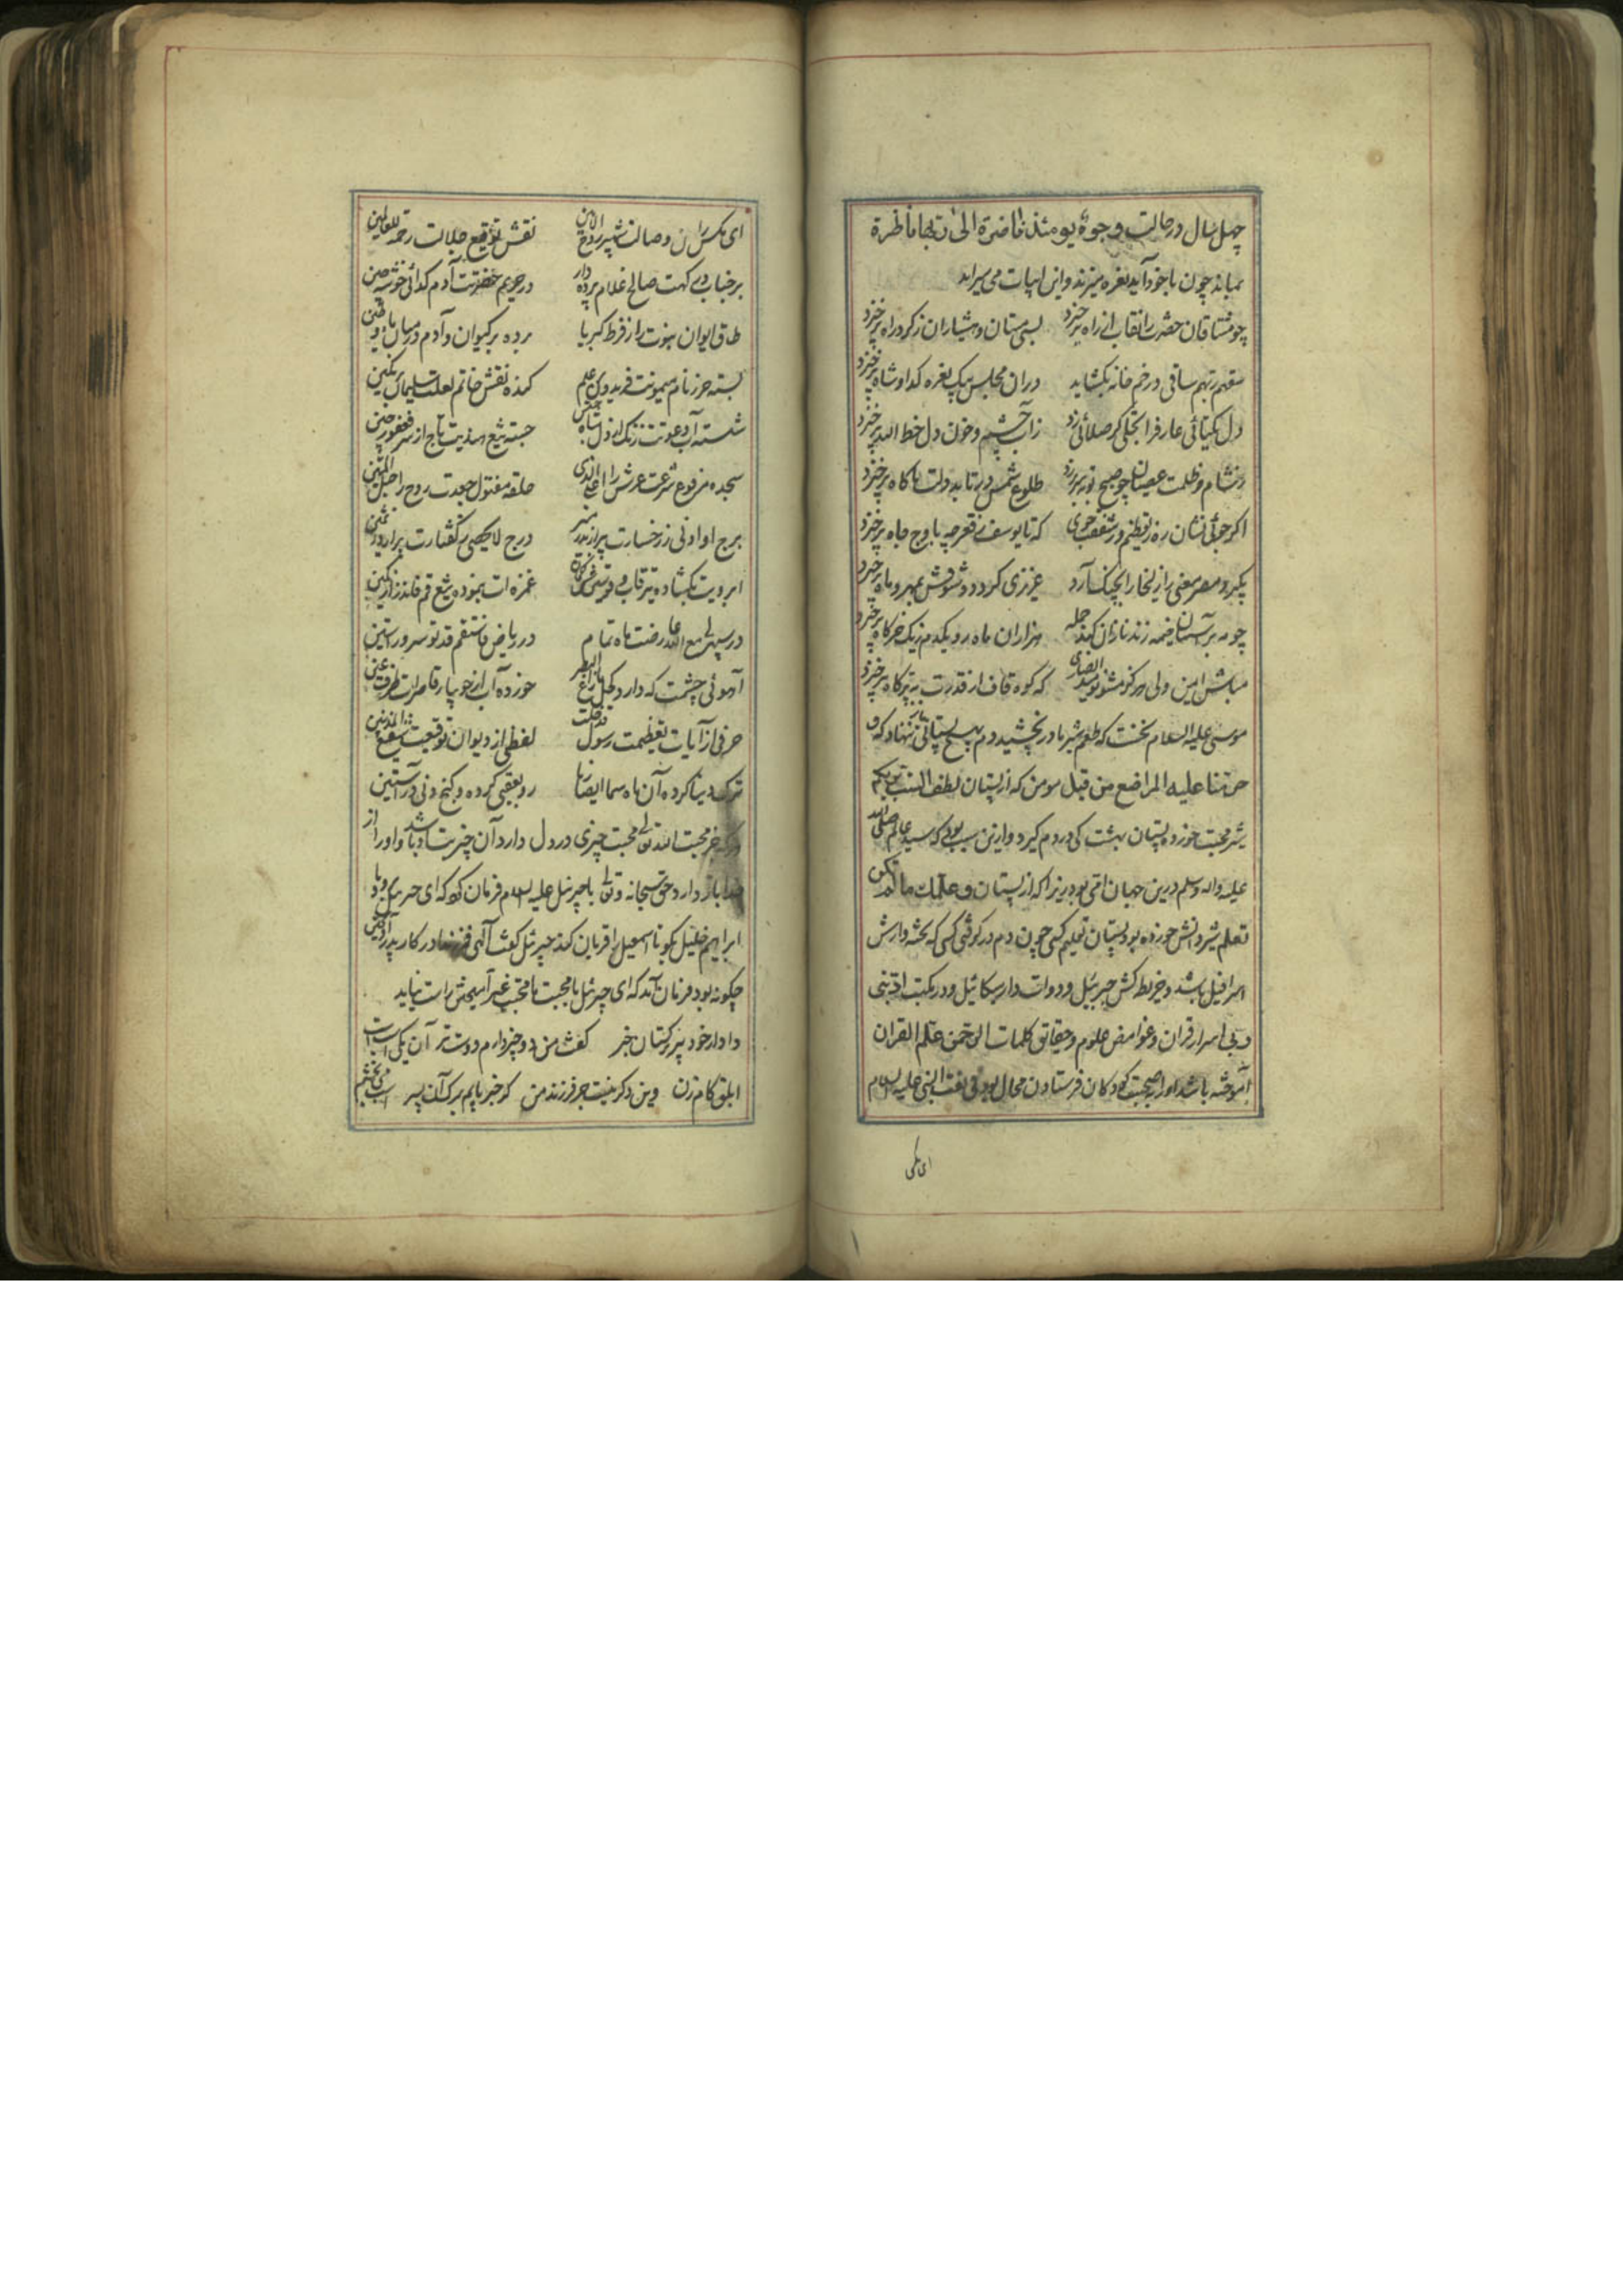 چهل سال در حالت وجوه یومئذ ناضرة الی ربها ناظرة
بماند چون باخود آید نعره میزند و این ابیات می سراید
چو مشتاقان حضرت را نقاب از راه برخیزد بسی مستان و هشیاران ز کرد راه برخیزد
سقیهم ربهم ساقی در خم خانه بکشاید دران مجلس بیک نعره کدا و شاه برخیزد
دل یکتائی عارف را تجلی کر صلائی زد ز آب چشم و خون دل خط الله برخیزد
ز شام و ظلمت عصیان چو صبح توبه طلوع شمس در تابد دلت ناکاه برخیزد
اکر جوئی نشان ره ز که تا یوسف ز قعر چه باوج جاه برخیزد
بکیرد مصر معنی را زلیخا را بچنک آرد عزیزی کردد و شورش بمهر و ماه برخیزد
چو مه بر آسمان خیمه زند هزاران ماه رو یکدم ز یک خرکاه برخیزد
مباش ایمن ولی هرکز مشو نومید که کوه قاف از قدرت به پر کاه برخیزد
موسی علیه السلام نخست که طعم شیر مادر بچشید دم بهیچ پستانی ننهاد که و
حرمنا علیه المراضع من قبل مومن که از پستان لطف الست بربکم
شیر محبت خورد به پستان بهشت کی در دم کیرد و ازین سبب بود که سید عالم صلی الله
علیه واله وسلم درین جهان امی بود زیرا که از پستان و علمک ما لم تکن
تعلم شیر دانش خورده بود پستان تعلیم کسی چون دم در کوفتی کسی که تخته دارش
اسرافیل باشد و خریطه کش جبرئیل و دوات دار میکائیل و در مکتب ادبنی
ربی اسرار قران و غوامض علوم و حقایق کلمات الرحمن علم القران
آموخته باشد او را بصحبت کودکان فرستادن محال بود فی نعت النبی علیه السلام
ای مکس
ای مکس ران وصالت شهپر روح الامین نقش توقیع جلالت رحمة للعالمین
بر جناب صالح غلام پرده دار در حریم حضرتت آدم کدائی خوشه چین
طاق ایوان نبوت را ز فرط کبریا برده بر کیوان و آدم در میان ما و طین
بسته حرز نام میمونت فریدون بر علم کنده نقش خاتم لعلت سلیمان بر نکین
شسته آب دعوتت زنک از دل جسته تیغ هندیت تاج از سر فغفور چین
سجده مرفوع شرعت عرش را حلقه مفتول جعدت روح را حبل المتین
برج او ادنی ز رخسارت پر از بدر منیر درج لا یحصی ز کفتارت پر از در ثمین
ابرویت بکشاده تیر قاب قوسین غمزه ات بنموده تیغ قم فانذر از کمین
در سپهر لی مع الله عارضت ماه تمام در ریاض فاستقم قد تو سرو راستین
آهوئی چشمت که دارد کحل ما زاغ البصر خورده آب از جویبار قاصرات الطرف عین
حرفی از آیات تعظیمت رسول قد خلت لفظی از دیوان توقیعت شفیع المذنبین
ترک دنیا کرده آن ماه سما ایضا رها رو بعقبی کرده و کنج در آستین
هرکه جز محبت الله تعالی محبت چیزی در دل دارد آن چیز بت او باشد و او را از
خدا باز دارد حق سبحانه وتعالی با جبرئیل علیه السلام فرمان کرد که ای جبرئیل برو با
ابراهیم خلیل بکو تا اسمعیل را قربان کند جبرئیل کفت الهی فرزند در کار پدر
چکونه بود فرمان آمد که ای جبرئیل با محبت ما محبت غیر آمیختن راست نیاید
داد از خود پیر کنعان خبر کفت من دو چیز دارم دوست تر آن یکی اسپ است
ابلق کام زن وین دکر نیست جز فرزند من کر خبر یابم برک آن پسر اسپ می بخشم